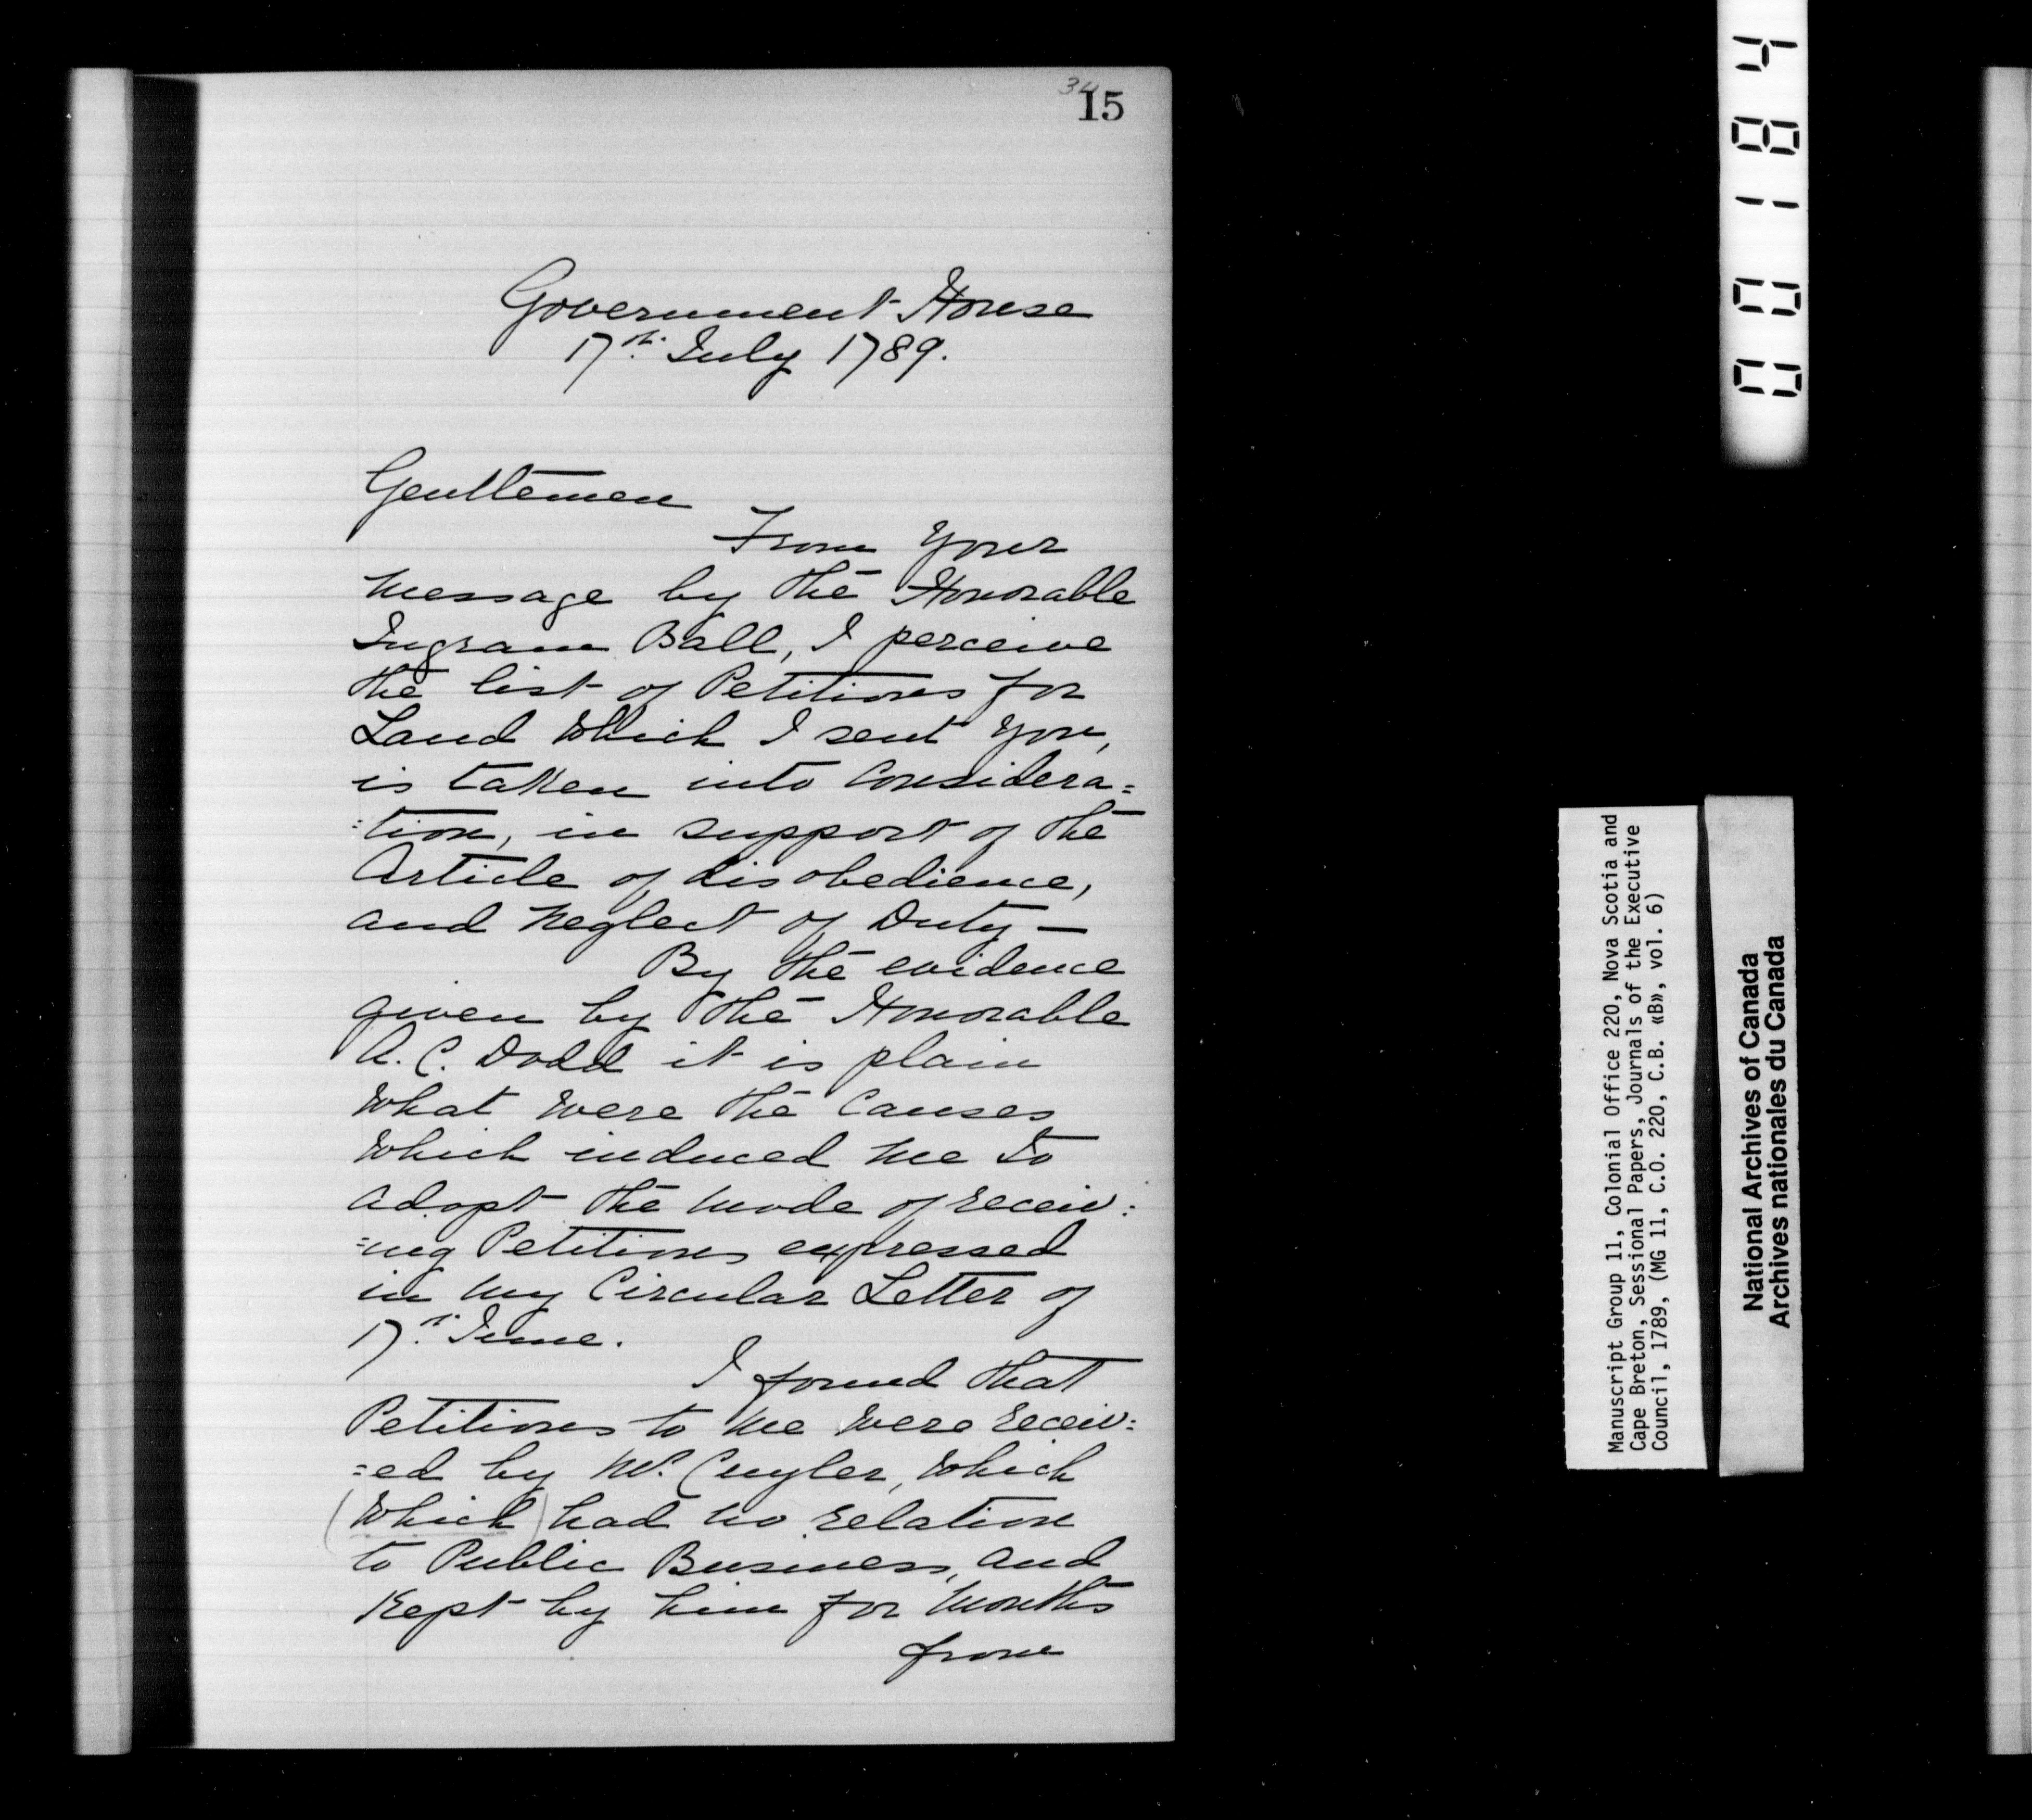 34
15
Government House
17th. July 1789.
Gentlemen
From Your
Message by the Honorable
Ingram Ball, I perceive
the list of Petitions for
Land Which I sent You,
is taken into Considera=
=tion, in support of the
Article of disobedience,
and Neglect of Duty —
By the evidence
given by the Honorable
A. C. Dodd it is plain
What Were the Causes
Which induced Me to
adopt the Mode of receiv=
=ing Petitions expressed
in My Circular Letter of
17th. June.
I found that
Petitions to Me Were receiv=
=ed by Mr. Cuyler, Which
(Which) had no relation
to Public Business, and
Kept by him for Months
from
00184
Manuscript Group 11, Colonial Office 220, Nova Scotia and
Cape Breton, Sessional Papers, Journals of the Executive
Council, 1789, (MG 11, C.O. 220, C.B. «B», vol. 6)
National Archives of Canada
Archives nationales du Canada